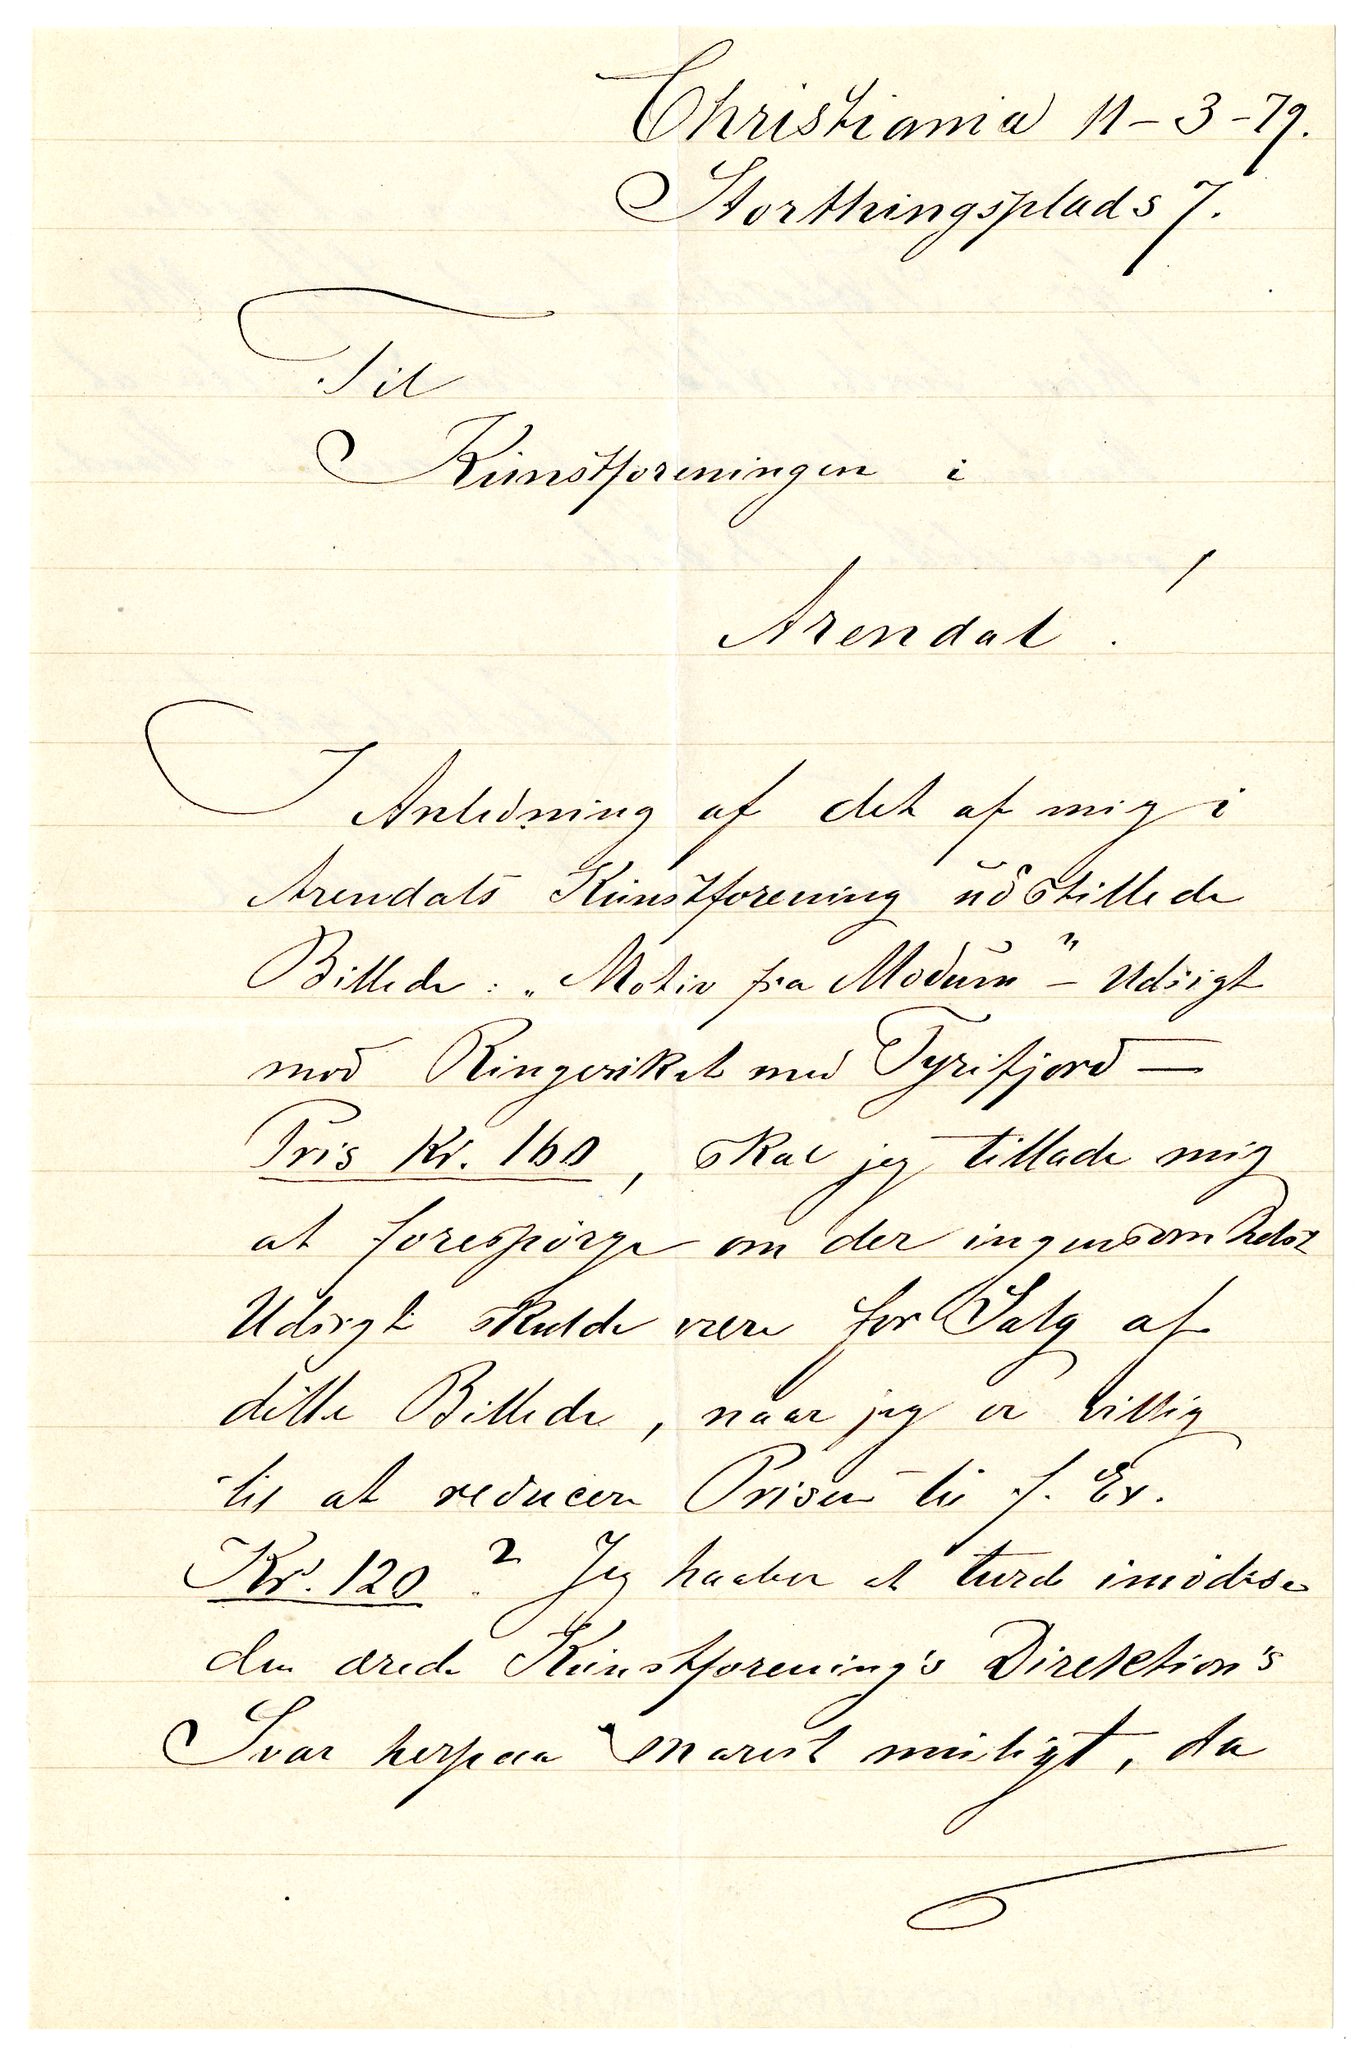 Christiania 11-3-79.
Storthingsplads 7.
Til
Kunstforeningen i
Arendal!
I Anledning af det af mig i
Arendals Kunstforening udstillede
Billede: „Motiv fra Modum" – Udsigt
mod Ringeriket med Tyrifjord —
Pris Kr. 160, skal jeg tillade mig
at forespørge om der ingensomhelst
Udsigt skulde være for Salg af
dette Billede, naar jeg er villig
til at reducere Prisen til f. Ex.
Kr. 120? Jeg haaber at turde imødese
den ærede Kunstforening's Direktion's
Svar herpaa snarest muligt, da